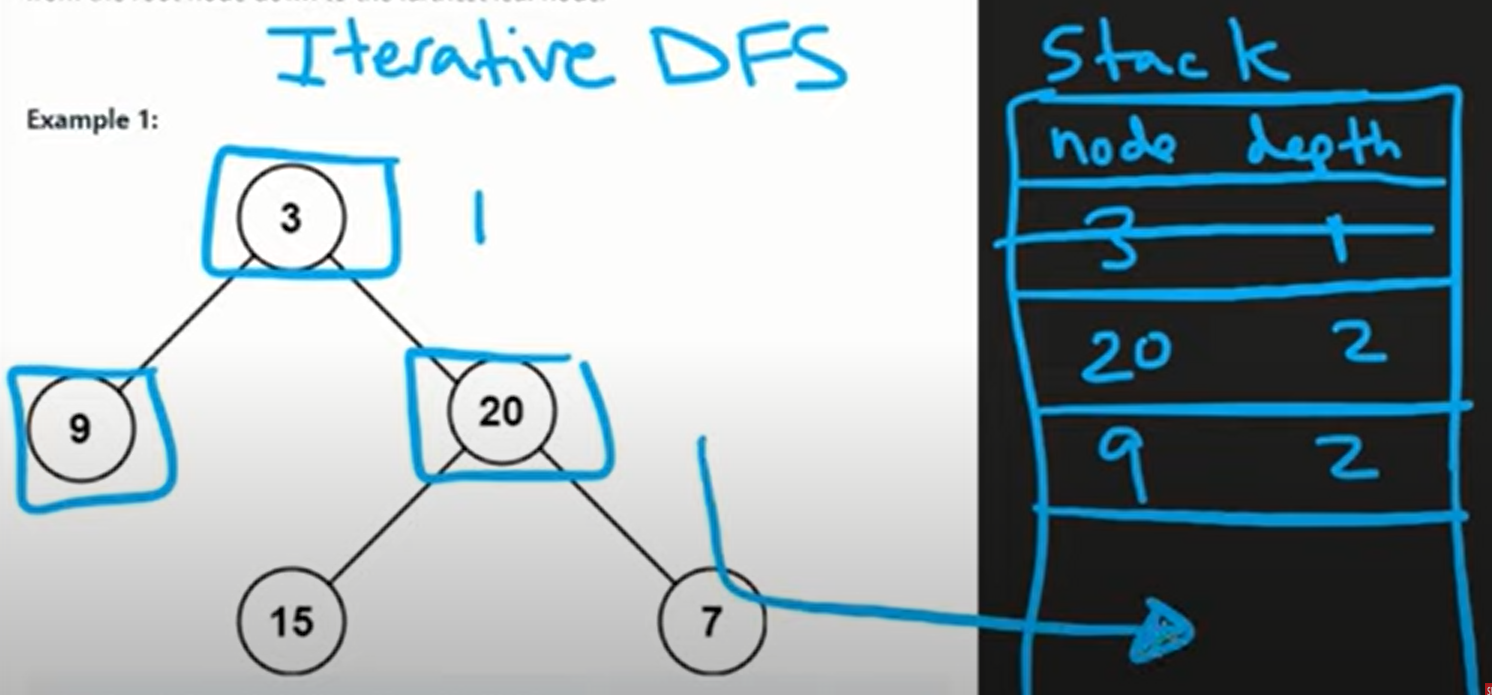 Iterative DFS
Example 1:
3
1
9
20
15
7
Stack
node depth
3 1
20 2
9 2